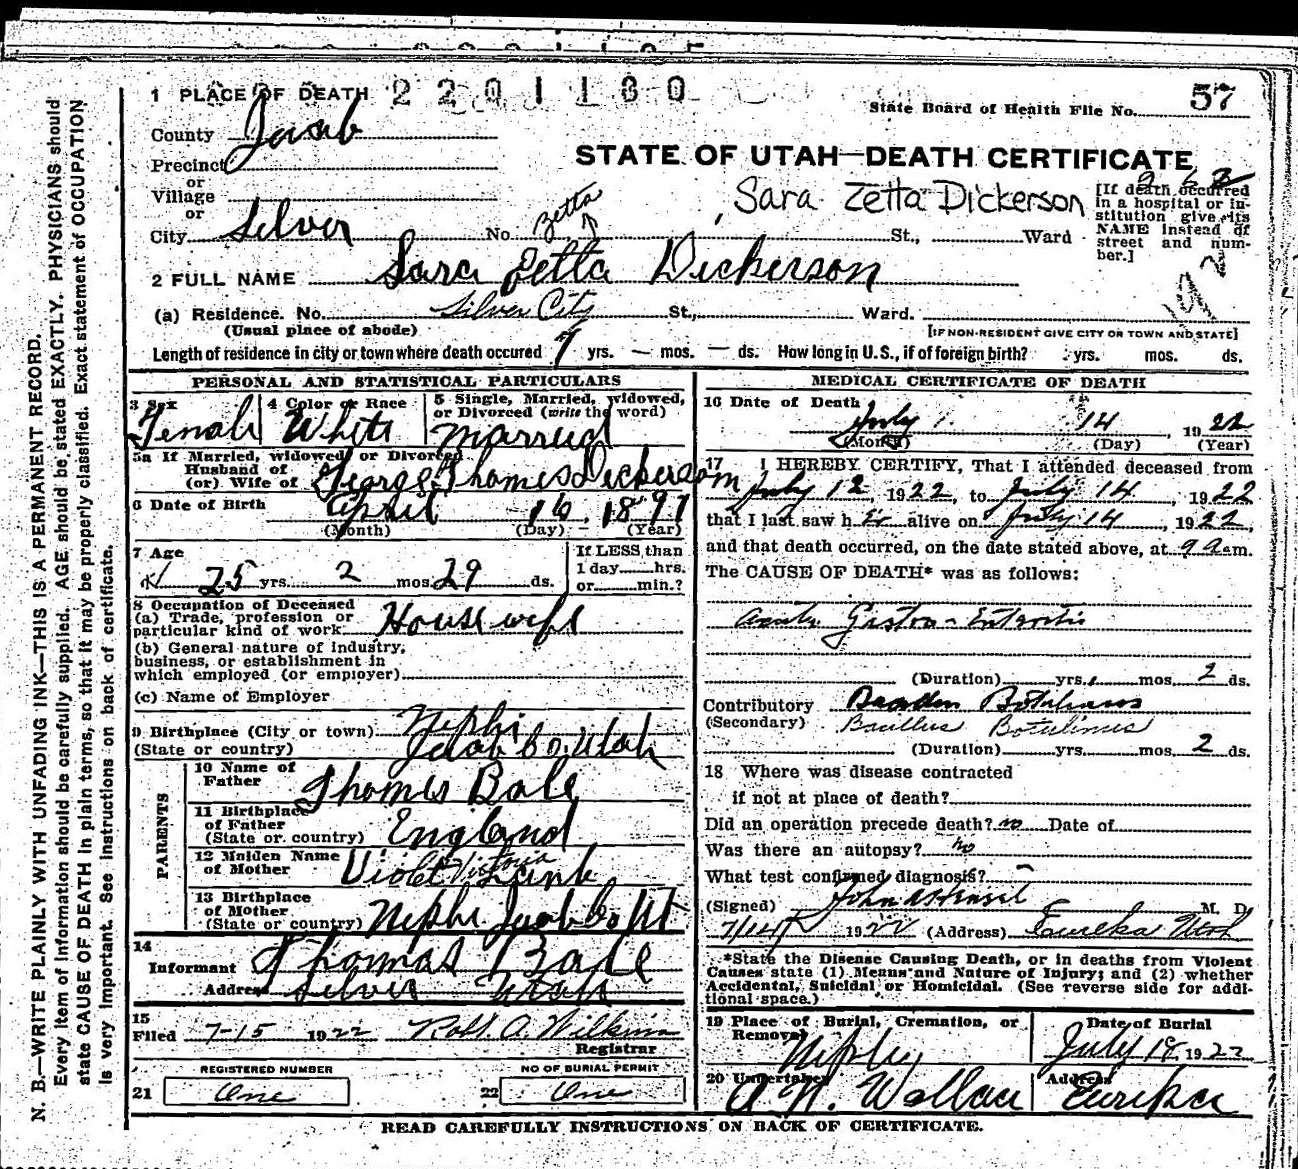 N. B.—WRITE PLAINLY WITH UNFADING INK—THIS IS A PERMANENT RECORD.
Every item of Information should be carefully supplied. AGE should be stated EXACTLY. PHYSICIANS should
state CAUSE OF DEATH in plain terms, so that it may be properly classified. Exact statement of OCCUPATION
is very important. See instructions on back of certificate.
1 PLACE OF DEATH 2201130
State Board of Health File No. 57
County Juab
STATE OF UTAH—DEATH CERTIFICATE
Precinct
or
Village
or
City Silver No. St., Ward
Zetta
Sara Zetta Dickerson
[If death occurred
in a hospital or in-
stitution give its
NAME instead of
street and num-
ber.]
2 FULL NAME Sara Zetta Dickerson
(a) Residence. No. Silver City St., Ward.
(Usual place of abode) [IF NON-RESIDENT GIVE CITY OR TOWN AND STATE]
Length of residence in city or town where death occured 7 yrs. — mos. — ds. How long in U.S., if of foreign birth? yrs. mos. ds.
PERSONAL AND STATISTICAL PARTICULARS
3 Sex Female
4 Color or Race White
5 Single, Married, Widowed,
or Divorced (write the word)
Married
5a If Married, widowed, or Divorced
Husband of
(or) Wife of George Thomas Dickerson
6 Date of Birth April 16, 1897
(Month) (Day) (Year)
7 Age
25 yrs. 2 mos. 29 ds.
If LESS than
1 day hrs.
or min.?
8 Occupation of Deceased
(a) Trade, profession or
particular kind of work Housewife
(b) General nature of industry,
business, or establishment in
which employed (or employer)
(c) Name of Employer
9 Birthplace (City or town) Nephi
(State or country) Juab Co. Utah
PARENTS
10 Name of
Father Thomas Bale
11 Birthplace
of Father
(State or country) England
12 Maiden Name
of Mother Violet Victoria
13 Birthplace
of Mother
(State or country) Nephi Juab Co Ut
14
Informant Thomas Bale
Address Silver Utah
15
Filed 7-15 1922 Robt. A. Wilkins
Registrar
REGISTERED NUMBER
21 One
NO OF BURIAL PERMIT
22 One
MEDICAL CERTIFICATE OF DEATH
16 Date of Death
July 14, 1922
(Month) (Day) (Year)
17 I HEREBY CERTIFY, That I attended deceased from
July 12, 1922, to July 14, 1922
that I last saw h er alive on July 14, 1922,
and that death occurred, on the date stated above, at 9 a.m.
The CAUSE OF DEATH* was as follows:
acute Gastro-Enteritis
(Duration) yrs. mos. 2 ds.
Contributory Botulinus
(Secondary) Bacillus Botulinus
(Duration) yrs. mos. 2 ds.
18 Where was disease contracted
if not at place of death?
Did an operation precede death? no Date of
Was there an autopsy? no
What test confirmed diagnosis?
(Signed) M. D.
7/14 1922 (Address) Eureka Utah
*State the Disease Causing Death, or in deaths from Violent
Causes state (1) Means and Nature of Injury; and (2) whether
Accidental, Suicidal or Homicidal. (See reverse side for addi-
tional space.)
19 Place of Burial, Cremation, or
Removal
Date of Burial
July 18, 1922
20 Undertaker
Address
A. N. Wallace Eureka
READ CAREFULLY INSTRUCTIONS ON BACK OF CERTIFICATE.